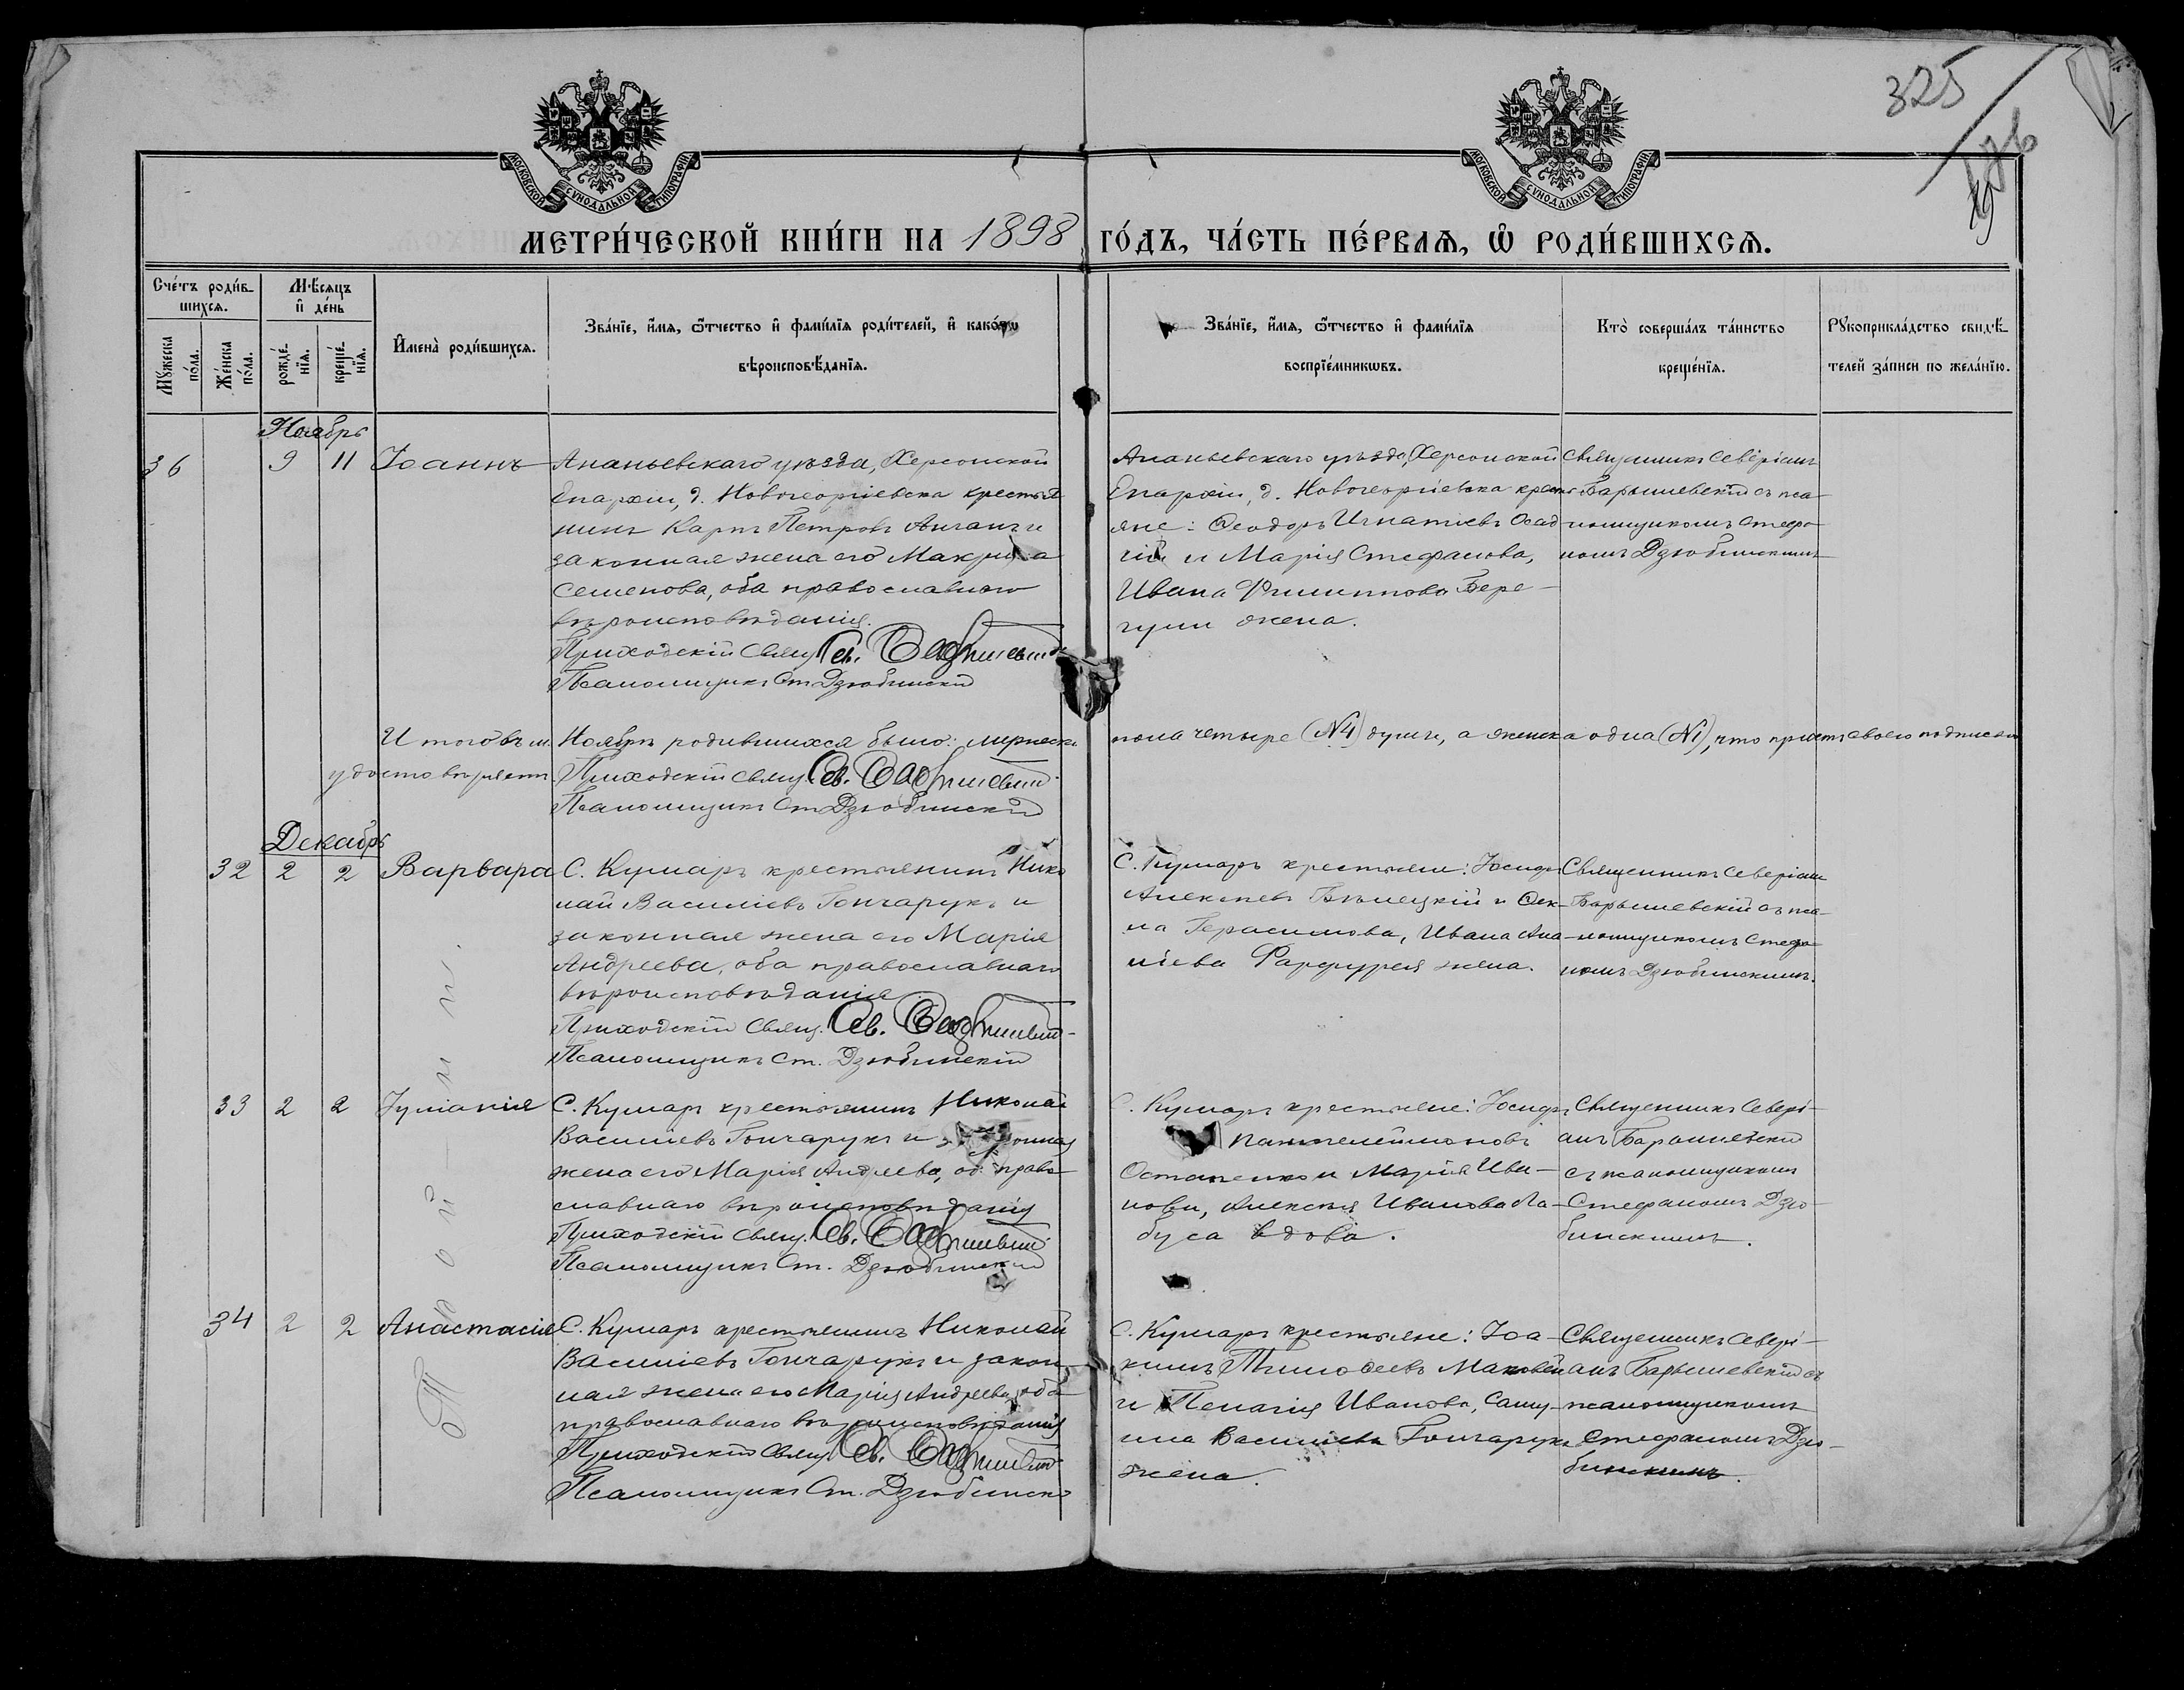 325
МОСКОВСКОЙ СѴНОДАЛЬНОЙ ТИПОГРАФІИ
МОСКОВСКОЙ СѴНОДАЛЬНОЙ ТИПОГРАФІИ
МЕТРИ́ЧЕСКОЙ КНИ́ГИ НА 1898 ГО́ДЪ, ЧА́СТЬ ПЕ́РВАѦ, Ѡ҆ РОДИ́ВШИХСѦ.
Сче́тъ роди́в-
шихсѧ.
Мꙋ́жеска по́ла.
Же́нска по́ла.
Мѣ́сѧцъ
и҆ де́нь
рожде́-
нїѧ.
креще́-
нїѧ.
И҆мена̀ роди́вшихсѧ.
Зва́нїе, и҆́мѧ, ѻ҆́тчество и҆ фами́лїѧ роди́телей, и҆ како́гѡ
вѣроисповѣ́данїѧ.
Зва́нїе, и҆́мѧ, ѻ҆́тчество и҆ фами́лїѧ
воспрїе́мникѡвъ.
Кто̀ соверша́лъ та́инство
креще́нїѧ.
Рꙋкоприкла́дство свидѣ́-
телей за́писи по жела́нїю.
Ноябрь
36 9 11 Іоаннъ
Ананьевскаго уѣзда, Херсонской
Епархіи, д. Новогеоргіевска крестья
нинъ Карпъ Петровъ и
законная жена его Макрина
Семенова, оба православнаго
вѣроисповѣданія.
Приходскій Свящ. Св. Барышевскій
Псаломщикъ Ст. Дзюбинскій
Ананьевскаго уѣзда, Херсонской
Епархіи, д. Новогеоргіевска кресть
яне: Ѳеодоръ Игнатіевъ Осад
чій и Марія Стефанова,
Ивана Филиппова Бере-
гули жена.
Священникъ Северіанъ
Барышевскій съ пса-
ломщикомъ Стефа-
номъ Дзюбинскимъ
Итого въ м. Ноябрѣ родившихся было: мужеска пола четыре (№4) души, а женска одна (№1), что причтъ своею подписью
удостовѣряетъ. Приходскій Свящ. Св. Барышевскій
Псаломщикъ Ст. Дзюбинскій
Декабрь
32 2 2 Варвара
С. Кумаръ крестьянинъ Нико
лай Василіевъ Гончарукъ и
законная жена его Марія
Андреева, оба православнаго
вѣроисповѣданія
Приходскій Свящ. Св. Барышевскій
Псаломщикъ Ст. Дзюбинскій
С. Кумаръ крестьяне: Іосифъ
Алексѣевъ Бѣлецкій и Ѳек-
ла Герасимова, Ивана Ана-
ніева жена.
Священникъ Северіанъ
Барышевскій съ пса-
ломщикомъ Стефа-
номъ Дзюбинскимъ.
33 2 2 Іуліанія
С. Кумаръ крестьянинъ Николай
Василіевъ Гончарукъ и законная
жена его Марія Андреева, об. право-
славнаго вѣроисповѣданія
Приходскій Свящ. Св. Барышевскій
Псаломщикъ Ст. Дзюбинскій
С. Кумаръ крестьяне: Іосифъ
Пантелеймоновъ
Остапенко и Марія Ива-
нова, Алексѣя Иванова Ла-
буса вдова.
Священникъ Севері-
анъ Барышевскій
съ псаломщикомъ
Стефаномъ Дзю-
бинскимъ.
34 2 2 Анастасія
С. Кумаръ крестьянинъ Николай
Василіевъ Гончарукъ и закон-
ная жена его Марія Андреева, оба
православнаго вѣроисповѣданія
Приходскій Свящ. Св. Барышевскій
Псаломщикъ Ст. Дзюбинскій
С. Кумаръ крестьяне: Іоа-
кимъ Тимоѳеевъ Маковей
и Пелагія Иванова, Саму-
ила Василіева Гончарука
жена.
Священникъ Севері-
анъ Барышевскій съ
псаломщикомъ
Стефаномъ Дзю-
бинскимъ.
Т р о й - н и.